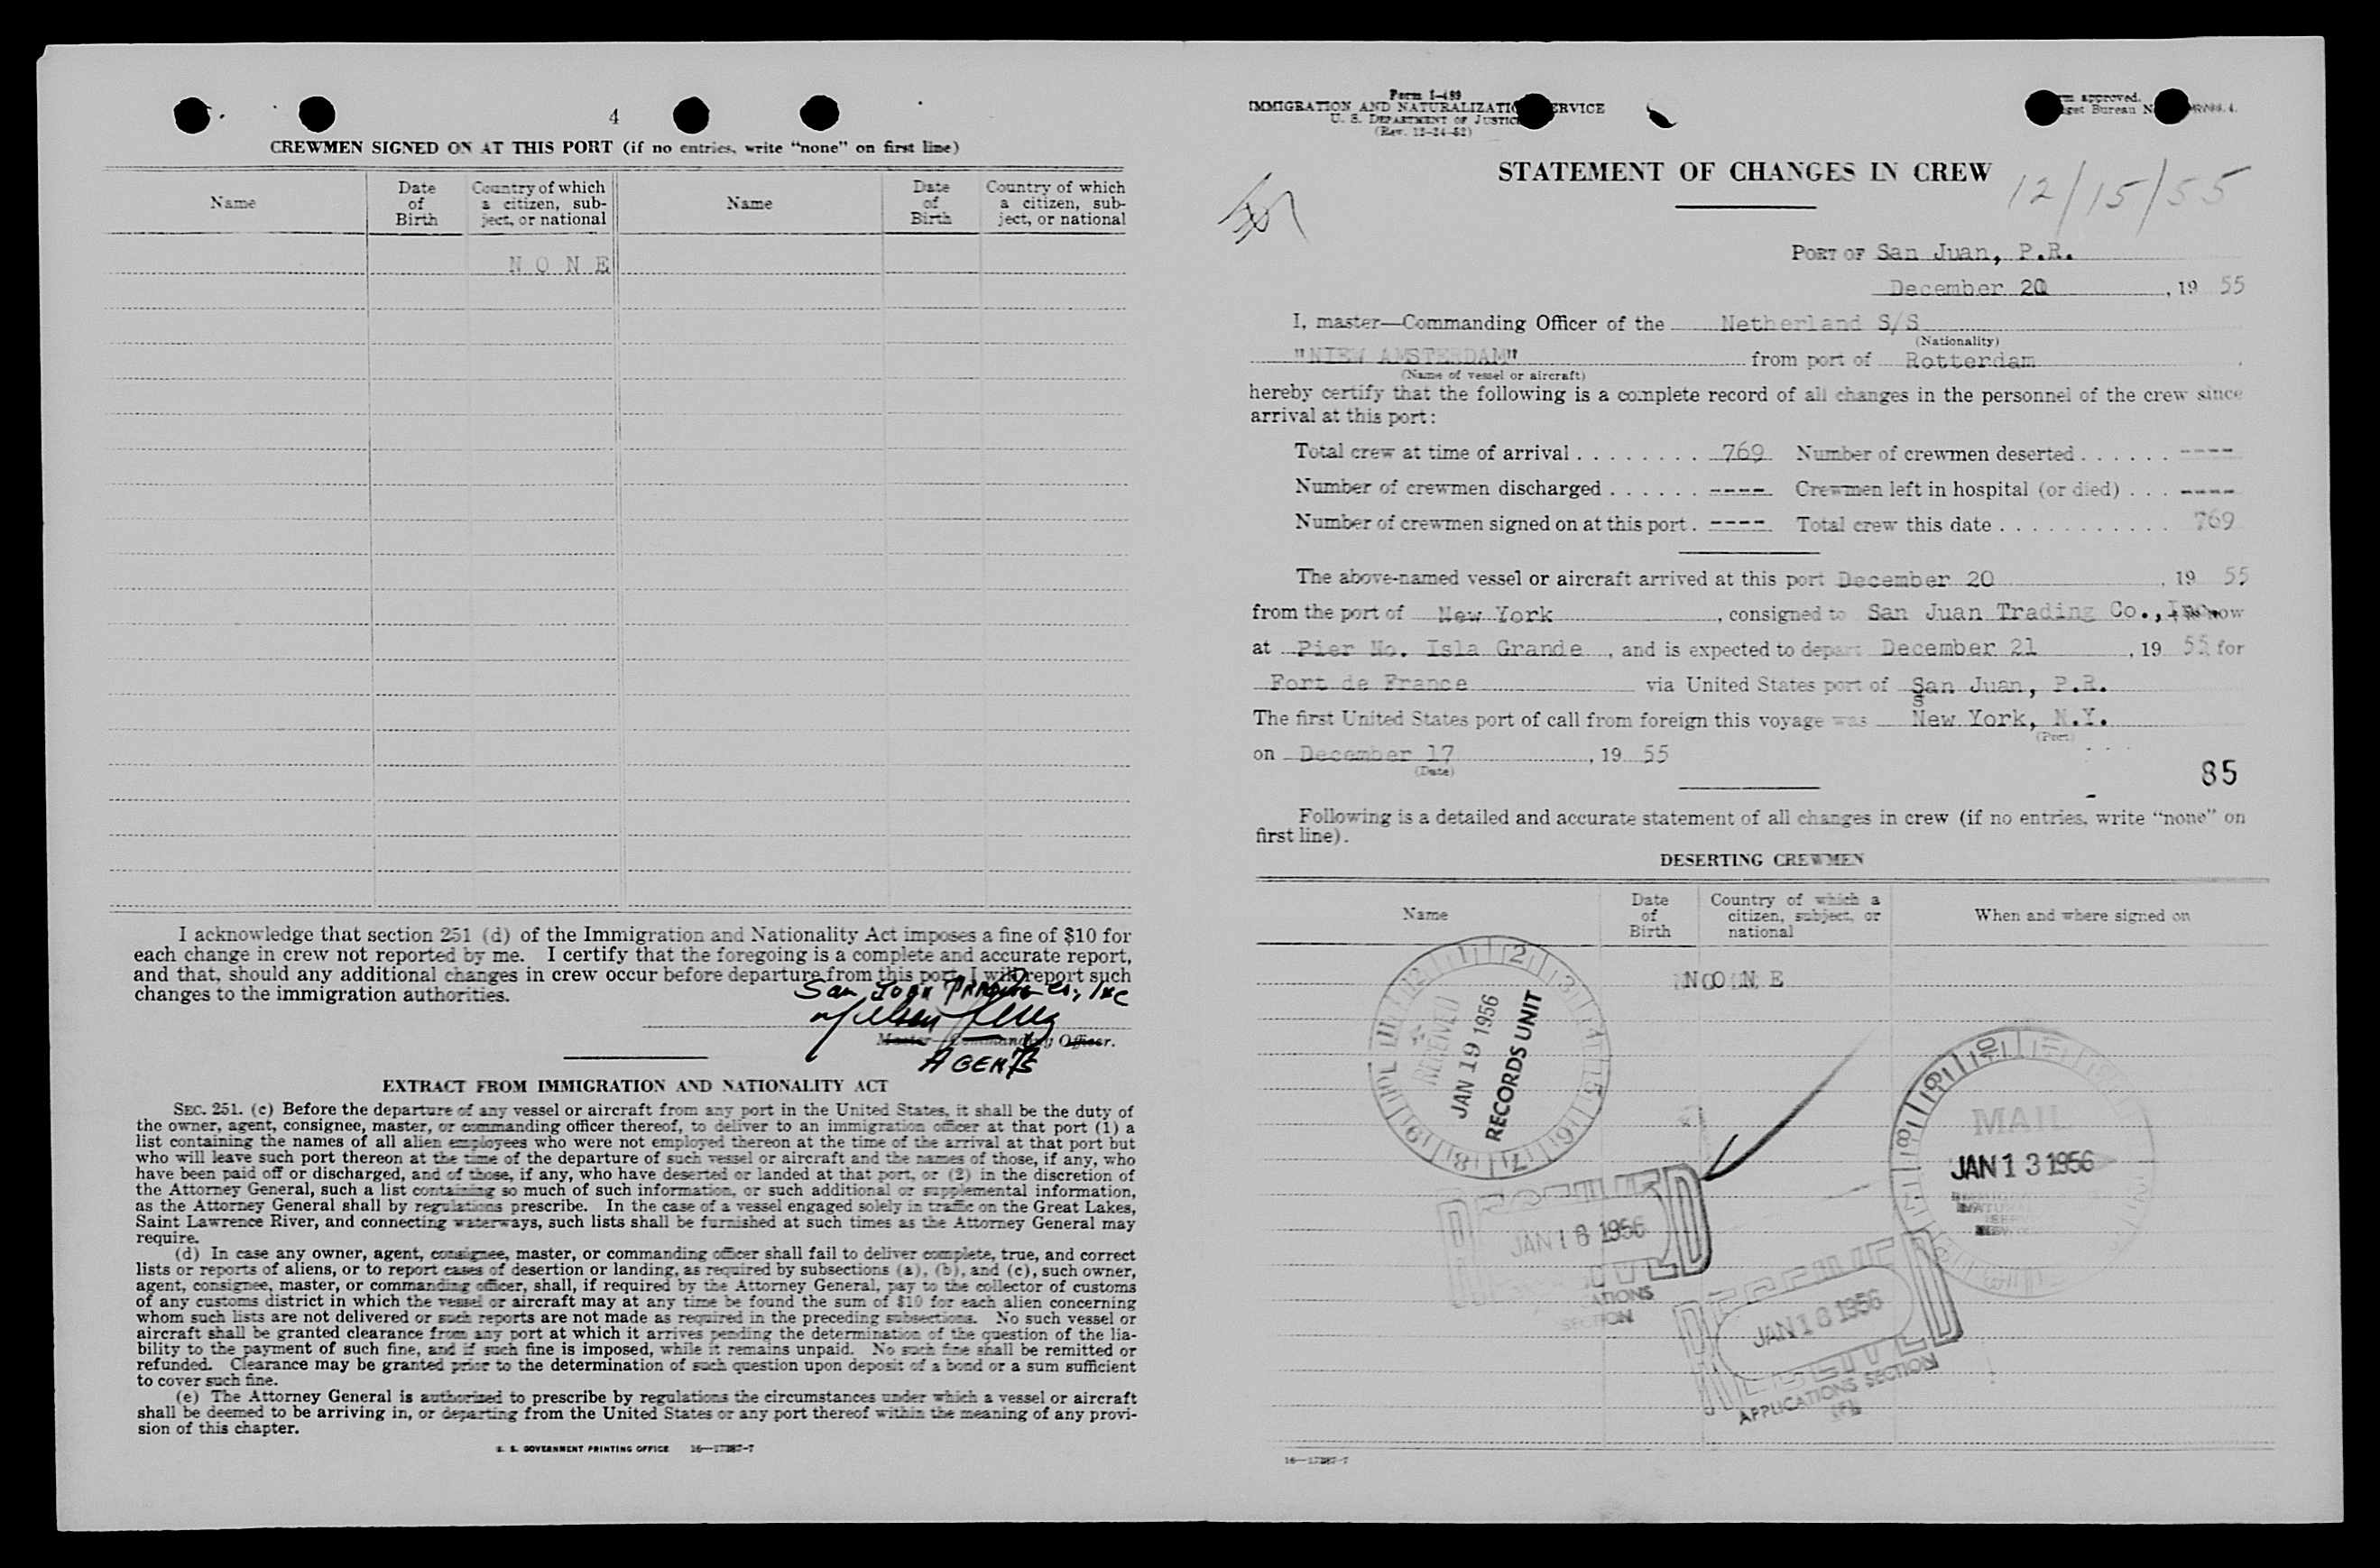 4
CREWMEN SIGNED ON AT THIS PORT (if no entries, write “none” on first line)
Name
Date of Birth
Country of which a citizen, subject, or national
Name
Date of Birth
Country of which a citizen, subject, or national
N O N E
I acknowledge that section 251 (d) of the Immigration and Nationality Act imposes a fine of $10 for
each change in crew not reported by me. I certify that the foregoing is a complete and accurate report,
and that, should any additional changes in crew occur before departure from this port, I will report such
changes to the immigration authorities.
San Juan Trading Co., Inc
Master—Commanding Officer.
AGENTS
EXTRACT FROM IMMIGRATION AND NATIONALITY ACT
SEC. 251. (c) Before the departure of any vessel or aircraft from any port in the United States, it shall be the duty of
the owner, agent, consignee, master, or commanding officer thereof, to deliver to an immigration officer at that port (1) a
list containing the names of all alien employees who were not employed thereon at the time of the arrival at that port but
who will leave such port thereon at the time of the departure of such vessel or aircraft and the names of those, if any, who
have been paid off or discharged, and of those, if any, who have deserted or landed at that port, or (2) in the discretion of
the Attorney General, such a list containing so much of such information, or such additional or supplemental information,
as the Attorney General shall by regulations prescribe. In the case of a vessel engaged solely in traffic on the Great Lakes,
Saint Lawrence River, and connecting waterways, such lists shall be furnished at such times as the Attorney General may
require.
(d) In case any owner, agent, consignee, master, or commanding officer shall fail to deliver complete, true, and correct
lists or reports of aliens, or to report cases of desertion or landing, as required by subsections (a), (b), and (c), such owner,
agent, consignee, master, or commanding officer, shall, if required by the Attorney General, pay to the collector of customs
of any customs district in which the vessel or aircraft may at any time be found the sum of $10 for each alien concerning
whom such lists are not delivered or such reports are not made as required in the preceding subsections. No such vessel or
aircraft shall be granted clearance from any port at which it arrives pending the determination of the question of the lia-
bility to the payment of such fine, and if such fine is imposed, while it remains unpaid. No such fine shall be remitted or
refunded. Clearance may be granted prior to the determination of such question upon deposit of a bond or a sum sufficient
to cover such fine.
(e) The Attorney General is authorized to prescribe by regulations the circumstances under which a vessel or aircraft
shall be deemed to be arriving in, or departing from the United States or any port thereof within the meaning of any provi-
sion of this chapter.
U. S. GOVERNMENT PRINTING OFFICE 16—17387-7
Form I-489
IMMIGRATION AND NATURALIZATION SERVICE
U. S. DEPARTMENT OF JUSTICE
(Rev. 12-24-52)
approved.
Bureau
STATEMENT OF CHANGES IN CREW
12/15/55
PORT OF San Juan, P.R.
December 20, 19 55
I, master—Commanding Officer of the Netherland S/S
(Nationality)
"NIEW AMSTERDAM" from port of Rotterdam
(Name of vessel or aircraft)
hereby certify that the following is a complete record of all changes in the personnel of the crew since
arrival at this port:
Total crew at time of arrival . . . . . . . . 769 Number of crewmen deserted . . . . . . ----
Number of crewmen discharged . . . . . . ---- Crewmen left in hospital (or died) . . . ----
Number of crewmen signed on at this port . ---- Total crew this date . . . . . . . . . . . . 769
The above-named vessel or aircraft arrived at this port December 20, 19 55
from the port of New York, consigned to San Juan Trading Co., Inc. now
at Pier No. Isla Grande, and is expected to depart December 21, 19 55 for
Fort de France via United States port of San Juan, P.R.
The first United States port of call from foreign this voyage was New York, N.Y.
(Port)
on December 17, 19 55
(Date)
85
Following is a detailed and accurate statement of all changes in crew (if no entries, write “none” on
first line).
DESERTING CREWMEN
Name
Date of Birth
Country of which a citizen, subject, or national
When and where signed on
N O N E
RECEIVED
JAN 19 1956
RECORDS UNIT
MAIL
JAN 13 1956
RECEIVED
JAN 18 1956
SECTION
RECEIVED
JAN 18 1956
APPLICATIONS SECTION
16—17387-7